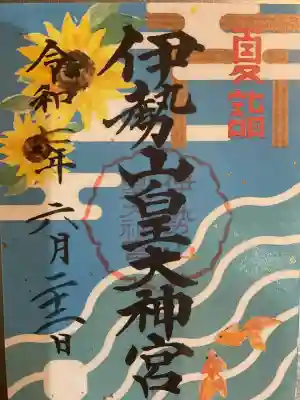 夏詣
伊勢山皇大神宮
令和二年六月二十二日